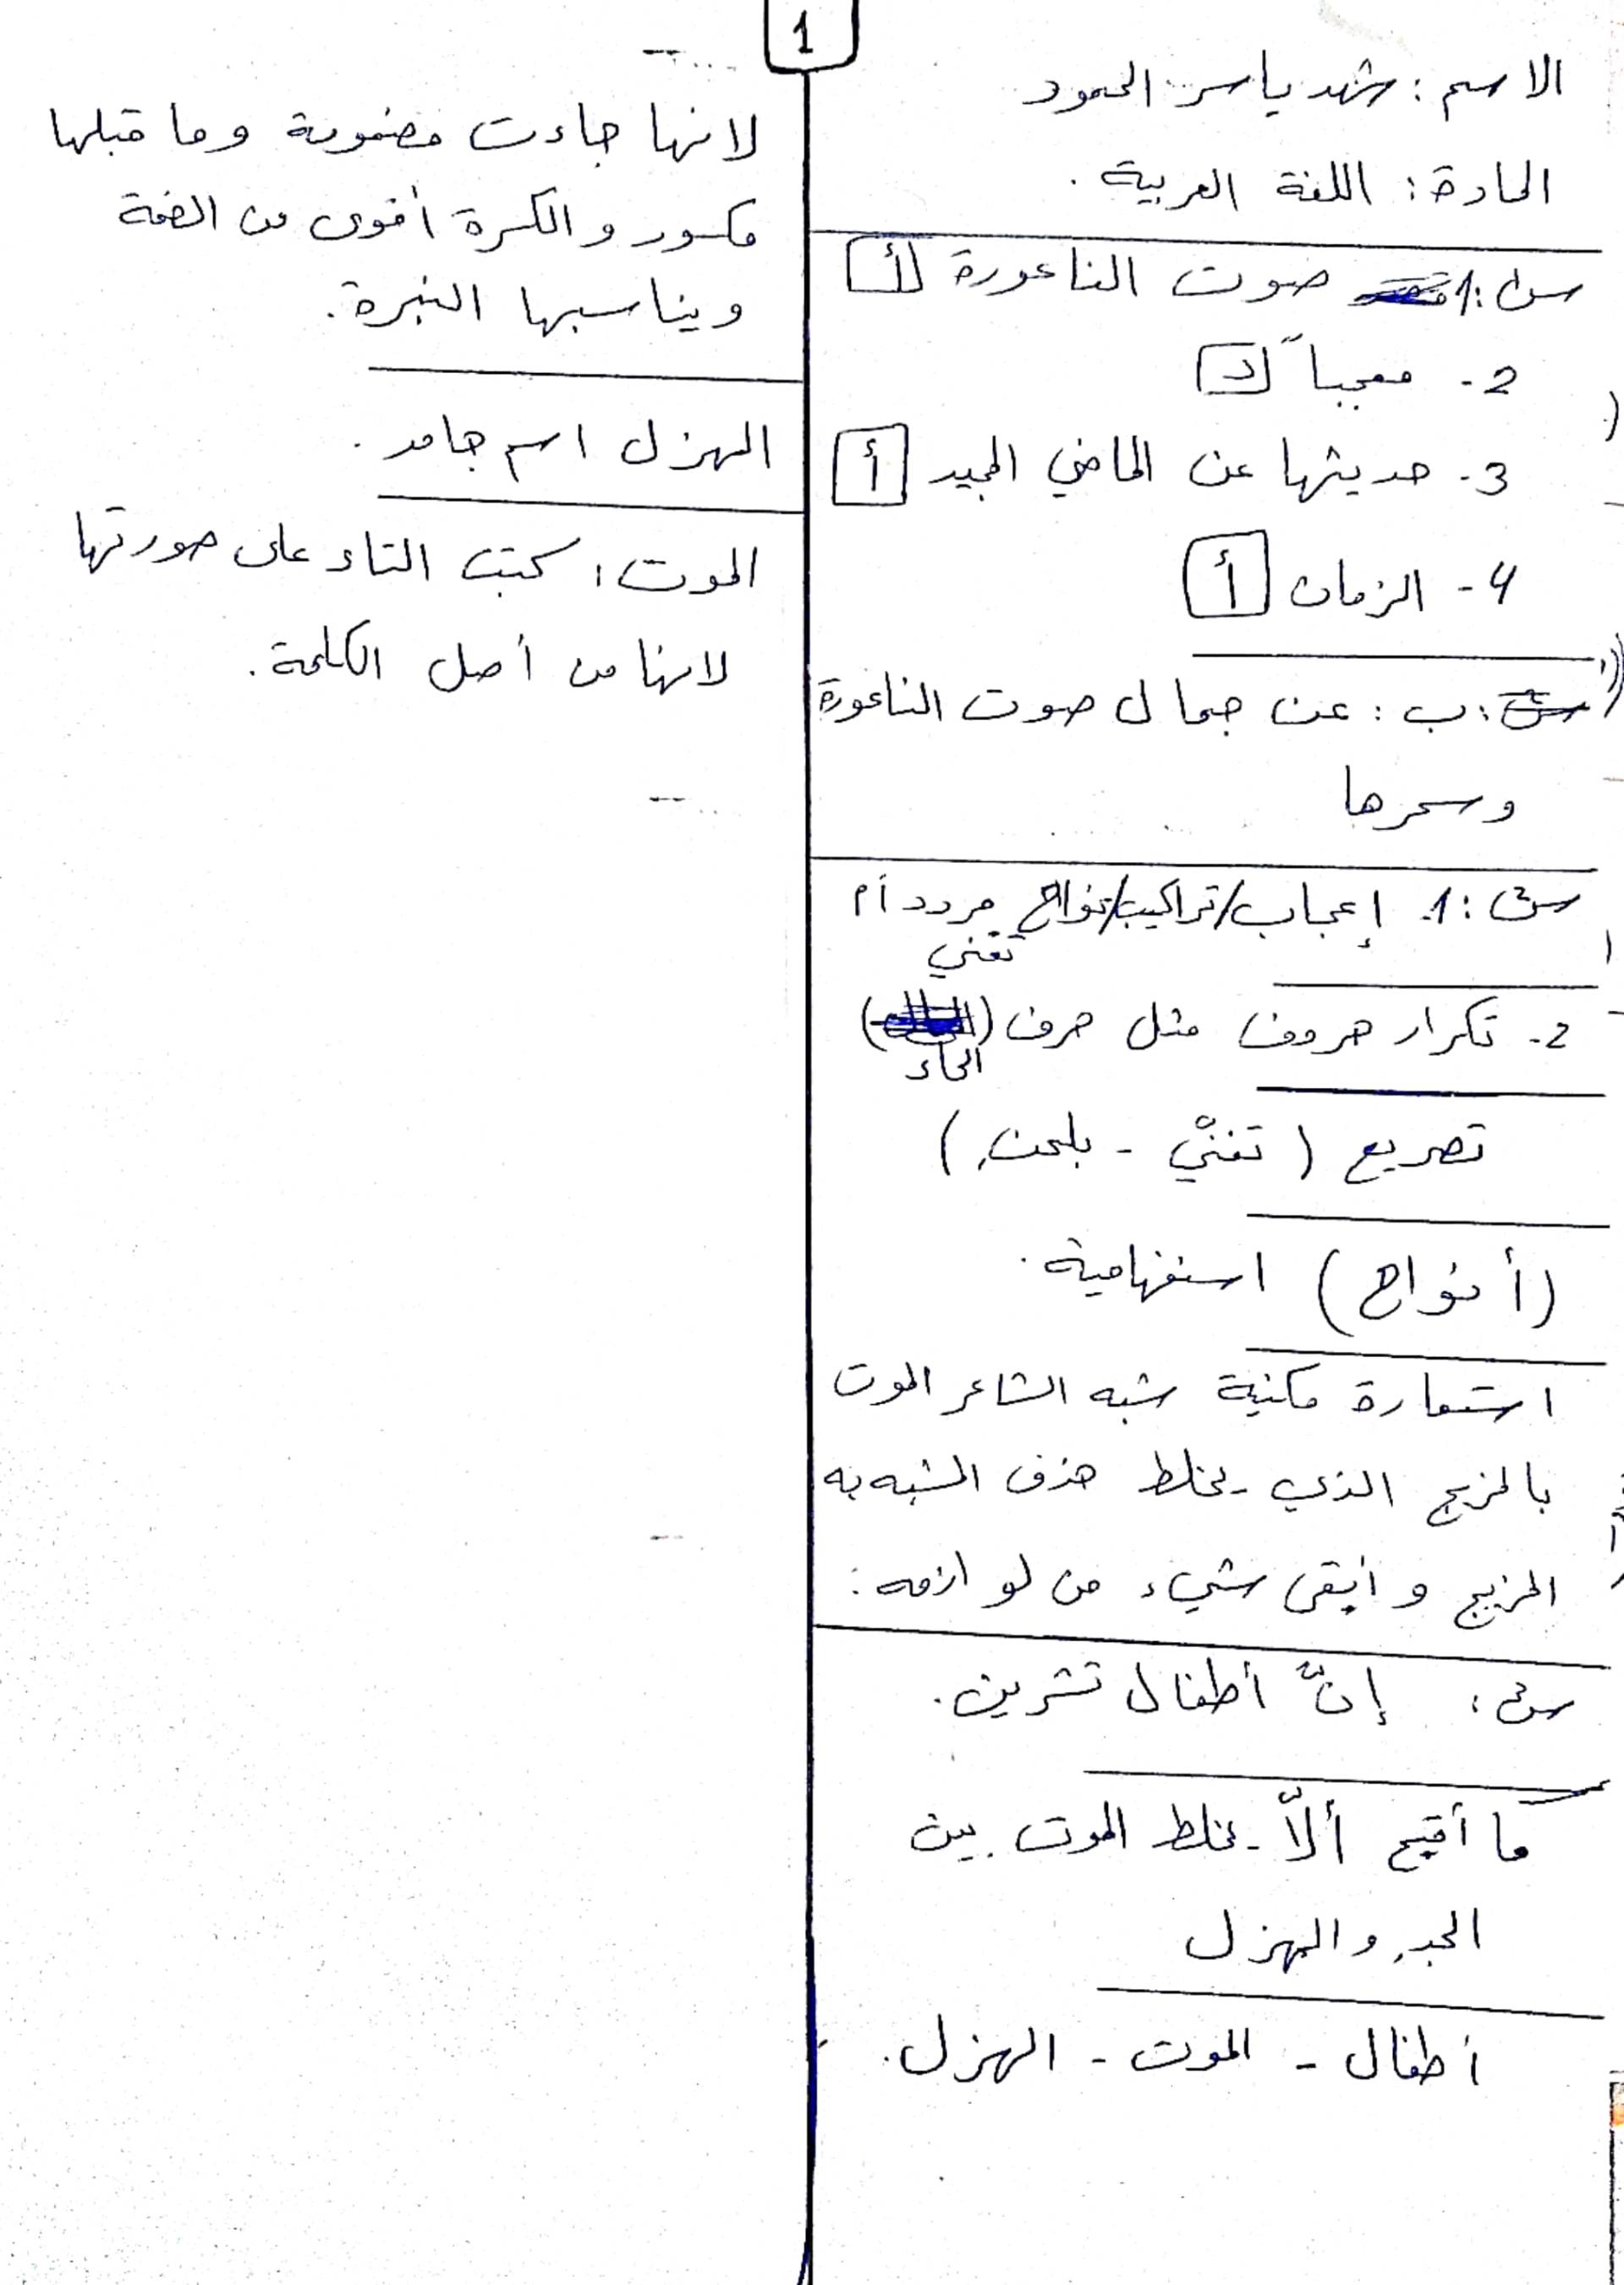 1
الاسم: شهد ياسر الحمود
المادة: اللغة العربية.
س1: صوت الناعورة أ
2- معجباً د
3- حديثها عن الماضي المجيد أ
4- الزمان أ
ب: عن جمال صوت الناعورة
وسحرها
س2: 1. إعجاب/تراكيب/نواح مردد أم
تغني
2- تكرار حروف مثل حرف ( )
الحاء
تصريع (تغنّي - بلحنِ)
(أنواح) استفهامية.
استعارة مكنية شبه الشاعر الموت
بالمزيج الذي يخلط حذف المشبه به
المزيج وأبقى شيء من لوازمه:
س3: إنّ أطفال تشرين.
ما أقبح ألّا يخلط الموت بين
الجدِ والهزل
أطفال - الموت - الهزل.
لانها جاءت مضمومة وما قبلها
مكسور والكسرة أقوى من الضمة
ويناسبها النبرة.
الهزل اسم جامد.
الموت: كتبت التاء على صورتها
لانها من أصل الكلمة.